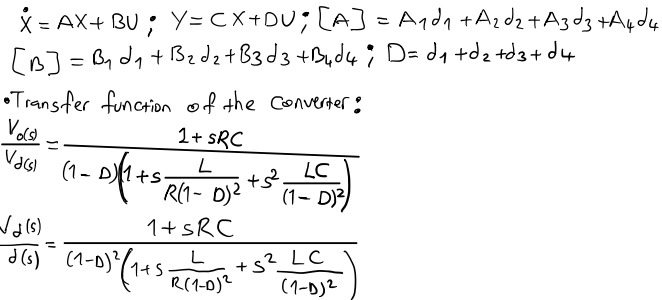 Ẋ = AX + BU ; Y = CX + DU ; [A] = A₁d₁ + A₂d₂ + A₃d₃ + A₄d₄
[B] = B₁d₁ + B₂d₂ + B₃d₃ + B₄d₄ ; D = d₁ + d₂ + d₃ + d₄
•Transfer function of the converter:
V₀(s)/V_d(s) = (1 + sRC) / ((1 - D)(1 + s L/(R(1 - D)²) + s² LC/(1 - D)²))
V_d(s)/d(s) = (1 + sRC) / ((1-D)²(1 + s L/(R(1-D)²) + s² LC/(1-D)²))